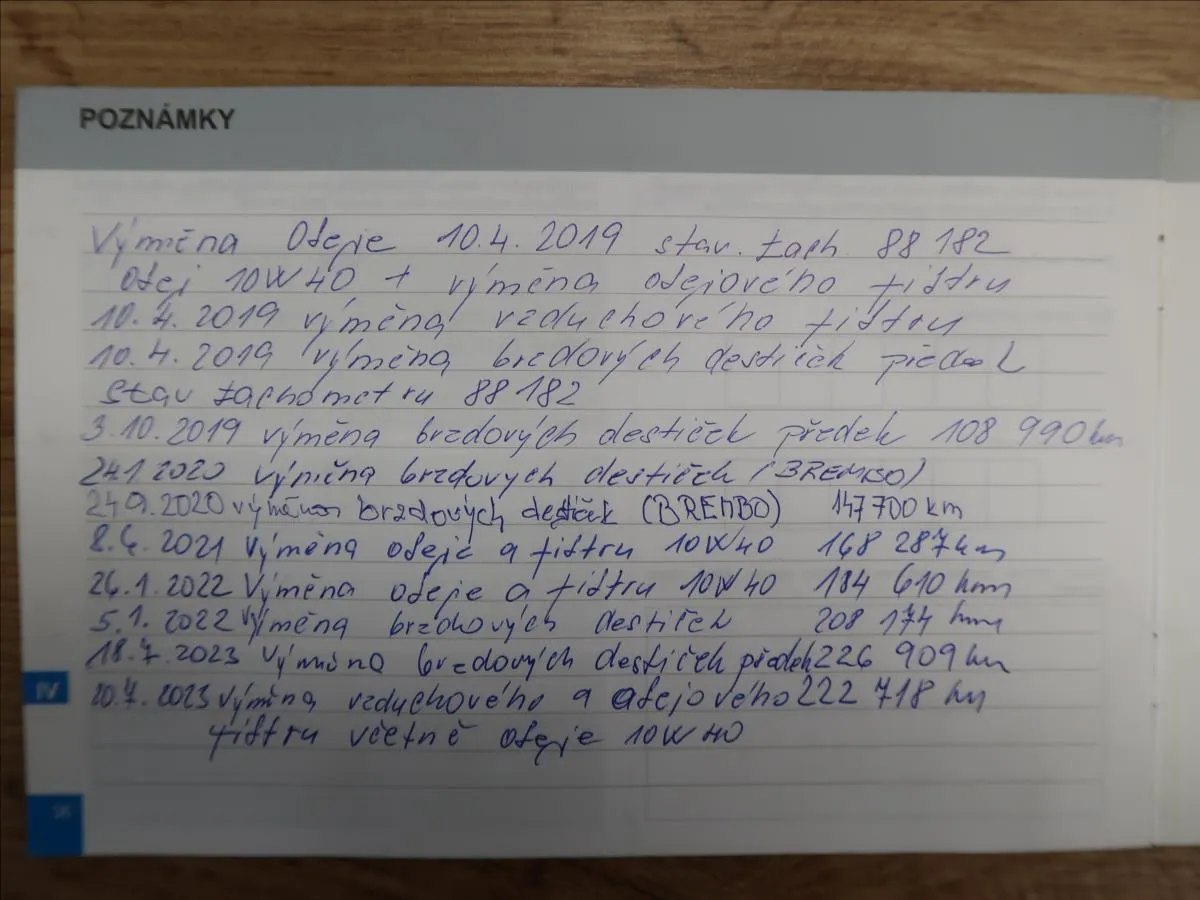 POZNÁMKY
Výměna Oleje 10.4.2019 stav. tach. 88 182
olej 10W40 + výměna olejového filtru
10.4.2019 výměna vzduchového filtru
10.4.2019 výměna brzdových destiček předek
stav tachometru 88 182
3.10.2019 výměna brzdových destiček předek 108 990 km
24.1 2020 výměna brzdových destiček (BREMBO)
24.9.2020 výměna brzdových destiček (BREMBO) 147 700 km
8.4.2021 výměna oleje a filtru 10W40 168 287 km
26.1.2022 Výměna oleje a filtru 10W40 184 610 km
5.1.2022 Výměna brzdových destiček 208 174 km
18.7.2023 Výměna brzdových destiček předek 226 909 km
20.7.2023 výměna vzduchového a olejového 222 718 km
filtru včetně oleje 10W40
IV